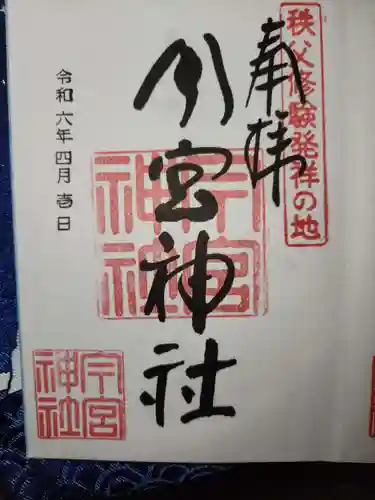 秩父修験発祥の地
奉拝
今宮神社
今宮
神社
令和六年四月壱日
今宮
神社